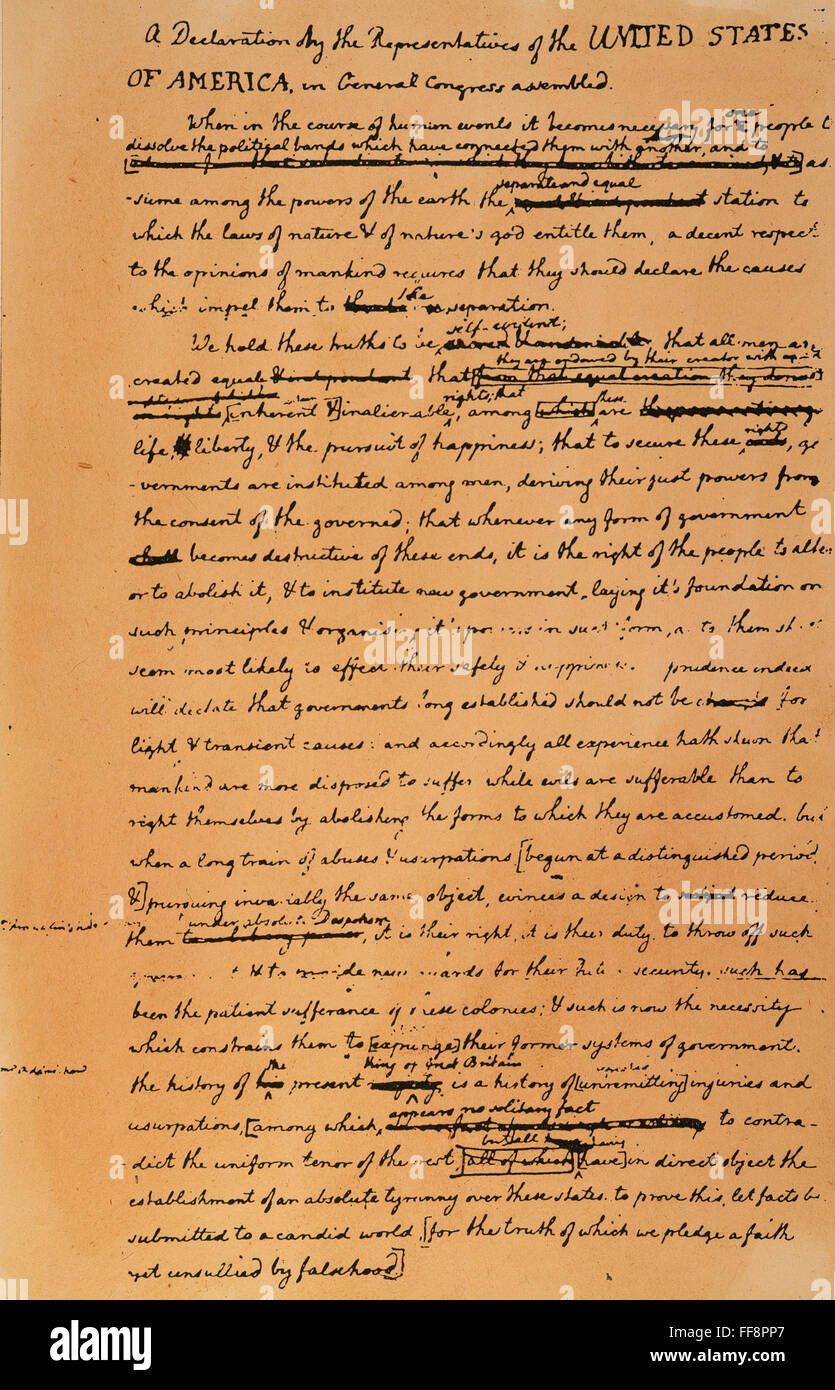 A Declaration by the Representatives of the UNITED STATES
OF AMERICA, in General Congress assembled.
When in the course of human events it becomes necessary for one people to
dissolve the political bands which have connected them with another, and to
as
separate and equal
-sume among the powers of the earth the station to
which the laws of nature & of nature's god entitle them, a decent respect
to the opinions of mankind requires that they should declare the causes
which impel them to the separation.
self-evident;
We hold these truths to be sacred & undeniable, that all men are
they are endowed by their creator with
created equal & independent, that [from that equal creation they derive
rights; that these
in rights [inherent &] inalienable, among [which] are
rights
life, & liberty, & the pursuit of happiness; that to secure these ends, go
-vernments are instituted among men, deriving their just powers from
the consent of the governed; that whenever any form of government
shall becomes destructive of these ends, it is the right of the people to alter
or to abolish it, & to institute new government, laying it's foundation on
such principles & organising it's powers in such form, as to them shall
seem most likely to effect their safety & happiness. prudence indeed
will dictate that governments long established should not be changed for
light & transient causes: and accordingly all experience hath shewn that
mankind are more disposed to suffer while evils are sufferable than to
right themselves by abolishing the forms to which they are accustomed. but
when a long train of abuses & usurpations, [begun at a distinguished period,
&] pursuing invariably the same object, evinces a design to subject reduce
under absolute Despotism
them, it is their right, it is their duty, to throw off such
& to provide new guards for their future security. such has
been the patient sufferance of these colonies; & such is now the necessity
which constrains them to [expunge] their former systems of government.
the king of Great Britain
the history of his present majesty is a history of [unremitting] injuries and
appears no solitary fact
usurpations, [among which, to contra-
but all having
-dict the uniform tenor of the rest, [all of which] [have] in direct object the
establishment of an absolute tyranny over these states. to prove this, let facts be
submitted to a candid world, [for the truth of which we pledge a faith
yet unsullied by falsehood.]
alamy
alamy
alamy
alamy
alamy stock photo
FF8PP7
www.alamy.com